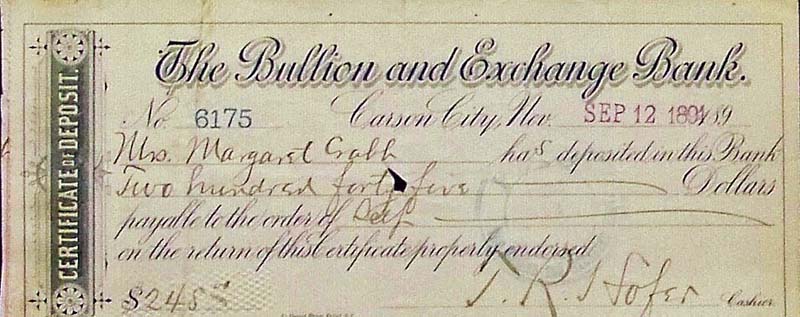 CERTIFICATE OF DEPOSIT.
The Bullion and Exchange Bank.
No. 6175 Carson City, Nev. SEP 12 1891 189
Mrs. Margaret Crabb has deposited in this Bank
Two hundred forty five Dollars
payable to the order of Self
on the return of this Certificate properly endorsed.
$245 T. R. Hofer Cashier